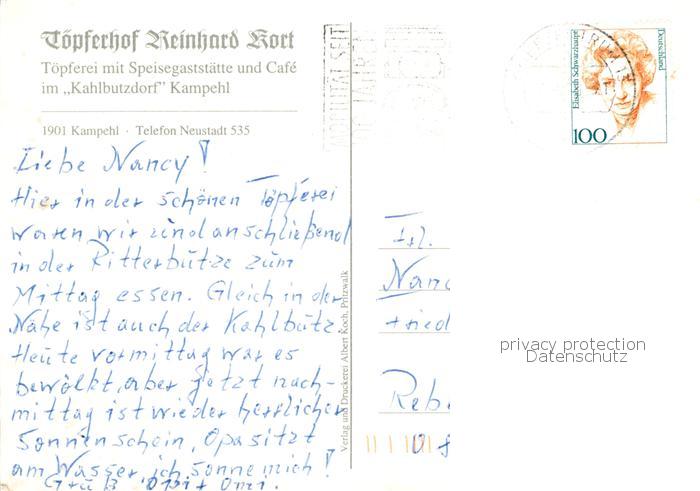 Töpferhof Reinhard Kort
Töpferei mit Speisegaststätte und Café
im „Kahlbutzdorf" Kampehl
1901 Kampehl · Telefon Neustadt 535
Liebe Nancy!
Hier in der schönen Töpferei
waren wir und anschließend
in der Ritterbutze zum
Mittag essen. Gleich in der
Nähe ist auch der Kahlbutz.
Heute vormittag war es
bewölkt, aber jetzt nach-
mittag ist wieder herrlicher
Sonnenschein, Opa sitzt
am Wasser ich sonne mich!
Gruß Opi + Omi.
Verlag und Druckerei Albert Koch, Pritzwalk
MOBILITÄT SEIT
Elisabeth Schwarzhaupt
Deutschland
100
Frl.
Nanc
Fried
Reb
privacy protection
Datenschutz